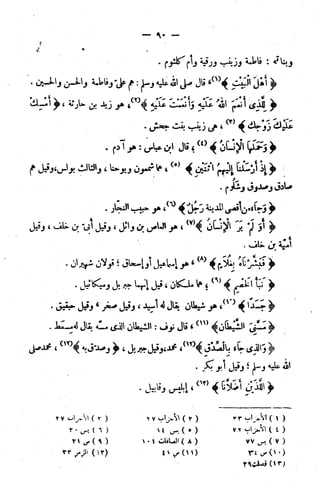 — ٩٠ —
وبناته : فاطمة وزينب ورقية وأم كلثوم .
﴿ أَهْلَ الْبَيْتِ ﴾(١)، قال صلى الله عليه وسلم : هم علىّ وفاطمة والحسن والحسين .
﴿ لِلَّذِى أَنْعَمَ اللهُ عَلَيْهِ وَأَنْعَمْتَ عَلَيْهِ ﴾(٢)، هو زيد بن حارثة ، ﴿ أَمْسِكْ
عَلَيْكَ زَوْجَكَ ﴾(٣)، هى زينب بنت جحش .
﴿ وَحَمَلَهَا الْإِنْسَانُ ﴾(٤)؛ قال ابن عباس : هو آدم .
﴿ إِذْ أَرْسَلْنَا إِلَيْهِمُ اثْنَيْنِ ﴾(٥)، هما شمعون ويوحنا ، والثالث بولس، وقيل هم
صادق وصدوق وشلوم .
﴿ وَجَاءَ مِنْ أَقْصَى الْمَدِينَةِ رَجُلٌ ﴾(٦)، هو حبيب النجار .
﴿ أَوَ لَمْ يَرَ الْإِنْسَانُ ﴾(٧)، هو العاص بن وائل ، وقيل أبىّ بن خلف ، وقيل
أميّة بن خلف .
﴿ فَبَشَّرْنَاهُ بِغُلَامٍ ﴾(٨)، هو إسماعيل أو إسحاق ؛ قولان شهيران .
﴿ نَبَأُ الْخَصْمِ ﴾(٩)؛ هما ملكان ، قيل إنهما جبريل وميكائيل .
﴿ جَسَدًا ﴾(١٠)، هو شيطان يقال له أسيد ، وقيل صخر ، وقيل حبقيق .
﴿ مَسَّنِىَ الشَّيْطَانُ ﴾(١١)، قال نوف : الشيطان الذى مسّه يقال له مسعط .
﴿ وَالَّذِى جَاءَ بِالصِّدْقِ ﴾(١٢)، محمد، وقيل جبريل ، ﴿ وصدّق به ﴾(١٢)، محمد صلى
الله عليه وسلم ؛ وقيل أبو بكر .
﴿ اللَّذَيْنِ أَضَلَّانَا ﴾(١٣)، إبليس وقابيل .
(١) الأحزاب ٣٣ (٢) الأحزاب ٣٧ (٣) الأحزاب ٣٧
(٤) الأحزاب ٧٢ (٥) يس ١٤ (٦) يس ٢٠
(٧) يس ٧٧ (٨) الصافات ١٠١ (٩) ص ٢١
(١٠) ص ٣٤ (١١) ص ٤١ (١٢) الزمر ٣٣
(١٣) فصلت ٢٩